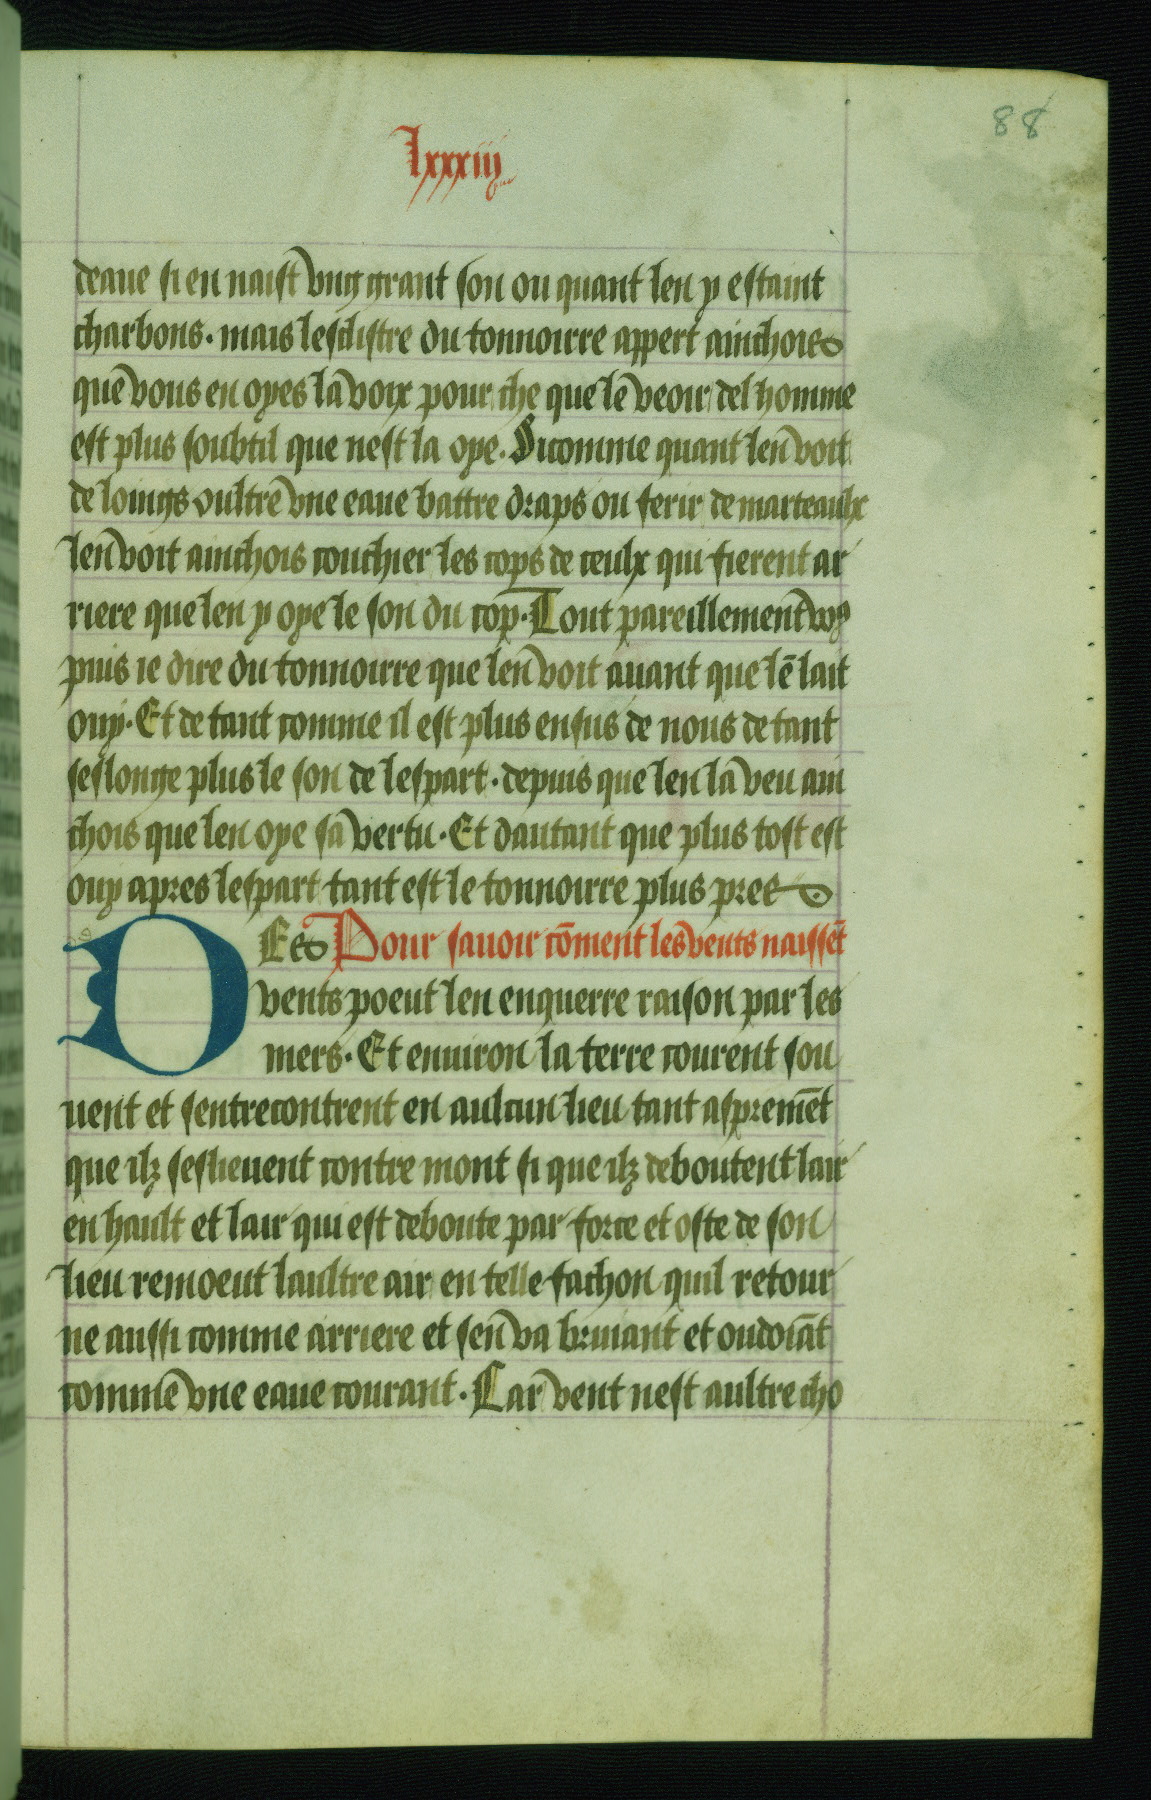 88
lxxxiij
deaue si en naist vng grant son ou quant len y estaint
charbons. mais lesclistre du tonnoirre appert ainchois
que vous en oyes la voix pour che que le veoir del homme
est plus soubtil que nest la oye. Sicomme quant len voit
de loings oultre vne eaue battre draps ou ferir de marteaulx
len voit ainchois touchier les cops de ceulx qui fierent ar
riere que len y oye le son du cop. Tout pareillement vo9
puis ie dire du tonnoirre que len voit auant que lē lait
ouy. Et de tant comme il est plus ensus de nous de tant
seslonge plus le son de lespart. depuis que len la veu ain
chois que len oye sa vertu. Et dautant que plus tost est
ouy apres lespart tant est le tonnoirre plus pres
DEs Pour sauoir cōment les vents naissēt
vents poeut len enquerre raison par les
mers. Et enuiron la terre courent sou
uent et sentrecontrent en aulcun lieu tant aspremēt
que ilz seslieuent contre mont si que ilz deboutent lair
en hault et lair qui est deboute par force et oste de son
lieu remoeut laultre air en telle fachon quil retour
ne aussi comme arriere et sen va bruiant et ondoiāt
comme vne eaue courant. Car vent nest aultre cho